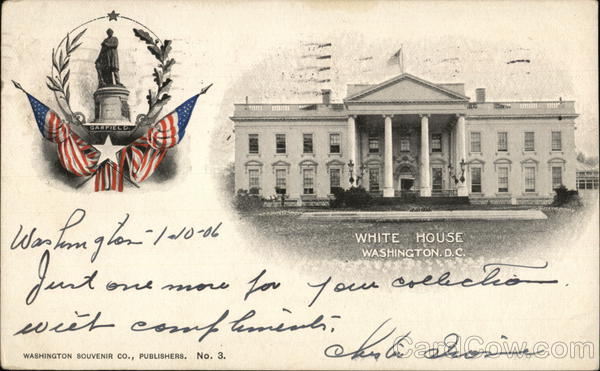 GARFIELD.
WHITE HOUSE
WASHINGTON. D.C.
Washington - 1-10-06
Just one more for your collection.
with compliments.
WASHINGTON SOUVENIR CO., PUBLISHERS. No. 3.
CardCow.com